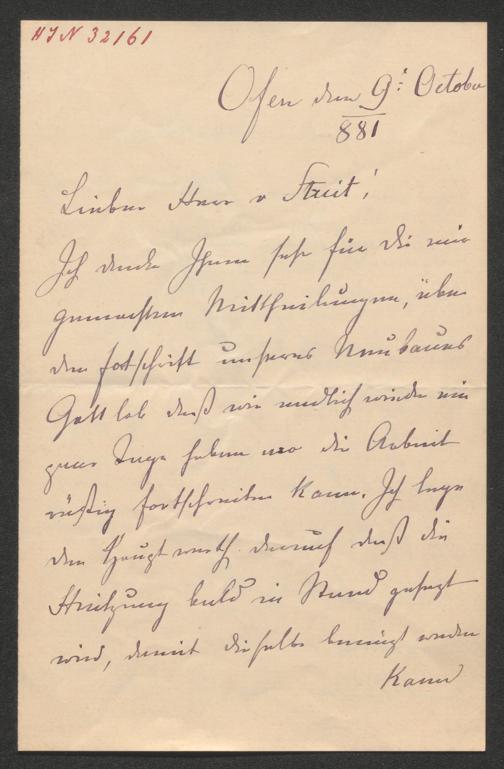 HIN 32161
Ofen den 9t October
881
Lieber Herr v Streit!
Ich danke Ihnen sehr für die mir
gemachten Mittheilungen, über
den fortschritt unseres Neubaues
Gott lob daß wir endlich wieder ein
paar Tage haben wo die Arbeit
rüstig fortschreiten kann. Ich lege
den Haupt werth darauf daß die
Heitzung bald in Stand gesezt
wird, damit dieselbe benüzt werden
kann